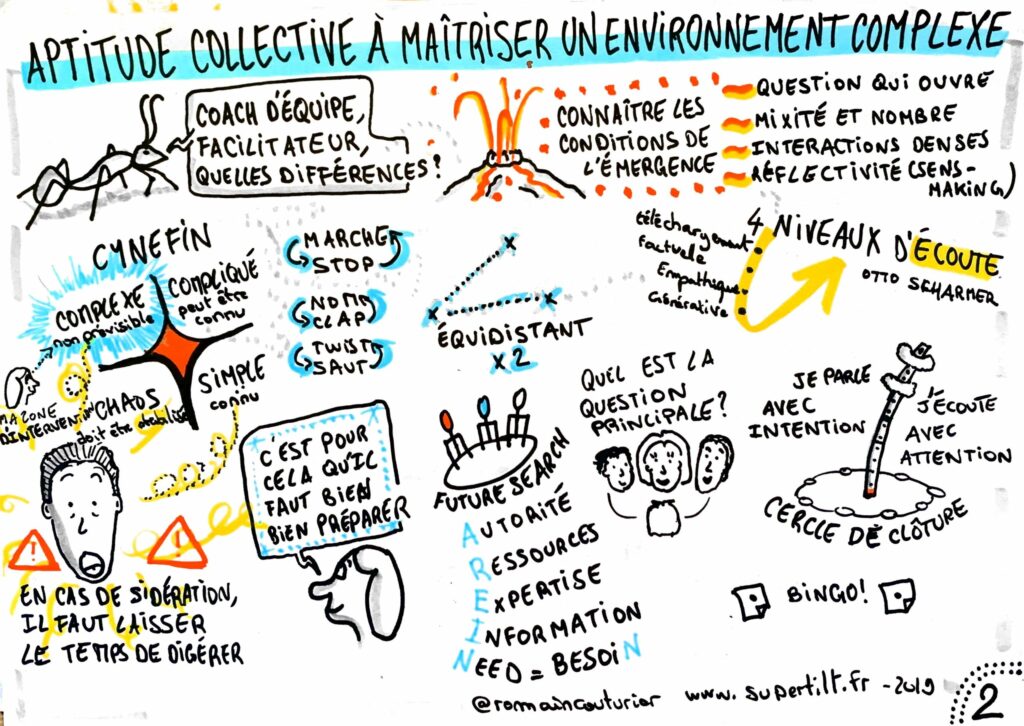 APTITUDE COLLECTIVE À MAÎTRISER UN ENVIRONNEMENT COMPLEXE
COACH D'ÉQUIPE,
FACILITATEUR,
QUELLES DIFFÉRENCES ?
CONNAÎTRE LES
CONDITIONS DE
L'ÉMERGENCE
QUESTION QUI OUVRE
MIXITÉ ET NOMBRE
INTERACTIONS DENSES
RÉFLECTIVITÉ (SENS-
MAKING)
CYNEFIN
COMPLEXE
non prévisible
COMPLIQUÉ
peut être
connu
MA ZONE
D'INTERVENTION
CHAOS
doit être stabilisé
SIMPLE
connu
MARCHE
STOP
NOM
CLAP
TWIST
SAUT
X
X
X
ÉQUIDISTANT
X2
4 NIVEAUX D'ÉCOUTE
OTTO SCHARMER
téléchargement
factuelle
Empathique
Générative
!
!
EN CAS DE SIDÉRATION,
IL FAUT LAISSER
LE TEMPS DE DIGÉRER
C'EST POUR
CELA QU'IL
FAUT BIEN
BIEN PRÉPARER
FUTURE SEARCH
AUTORITÉ
RESSOURCES
EXPERTISE
INFORMATION
NEED = BESOIN
QUEL EST LA
QUESTION
PRINCIPALE ?
JE PARLE
AVEC
INTENTION
J'ÉCOUTE
AVEC
ATTENTION
CERCLE DE CLÔTURE
BINGO !
@romaincouturier www.supertilt.fr - 2019
2